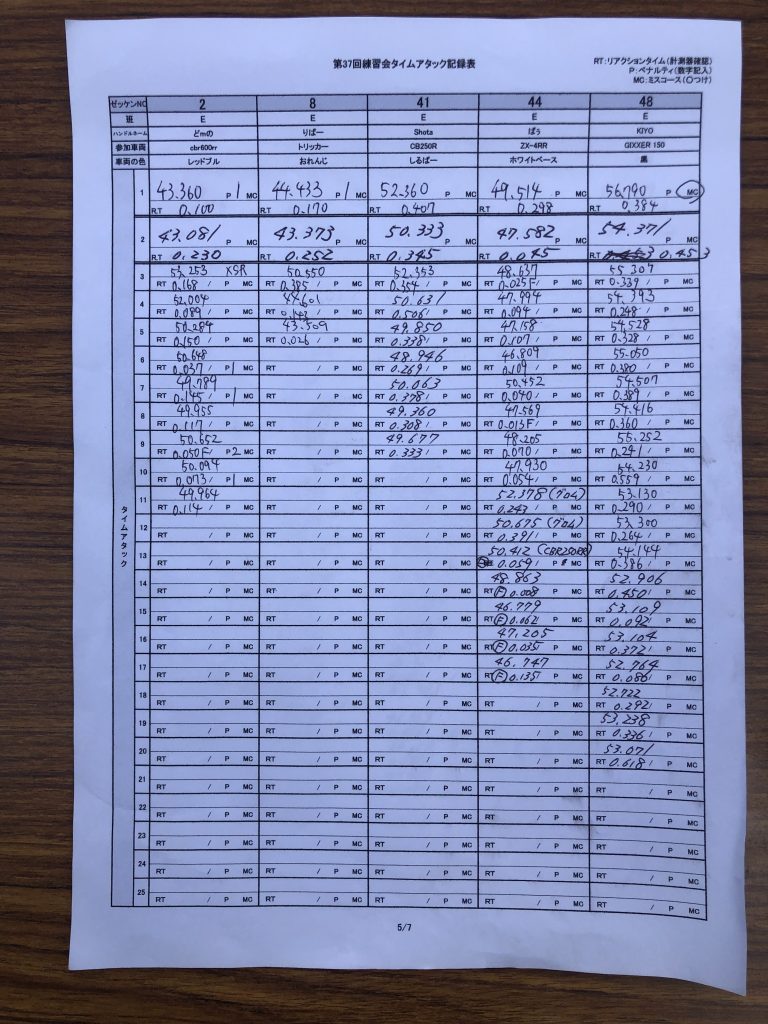 第37回練習会タイムアタック記録表
RT:リアクションタイム(計測器確認)
P:ペナルティ(数字記入)
MC:ミスコース(〇つけ)
ゼッケンNO 2 8 41 44 48
班 E E E E E
ハンドルネーム どmの りばー Shota ばぅ KIYO
参加車両 cbr600rr トリッカー CB250R ZX-4RR GIXXER 150
車両の色 レッドブル おれんじ しるばー ホワイトベース 黒
タイムアタック
1 43.360 P 1 MC 44.433 P 1 MC 52.360 P MC 49.514 P MC 56.790 P MC
R.T 0.100 R.T 0.170 R.T 0.407 R.T 0.298 R.T 0.384
2 43.081 P MC 43.373 P MC 50.333 P MC 47.582 P MC 54.371 P MC
R.T 0.230 R.T 0.252 R.T 0.345 R.T 0.045 R.T 0.453
3 53.253 XSR 50.550 52.353 48.637 55.307
RT 0.168 / P MC RT 0.385 / P MC RT 0.354 / P MC RT 0.025F / P MC RT 0.339 / P MC
4 52.004 44.601 50.631 47.994 54.393
RT 0.089 / P MC RT / P MC RT 0.506 / P MC RT 0.094 / P MC RT 0.248 / P MC
5 50.284 43.509 49.850 47.158 54.528
RT 0.150 / P MC RT 0.026 / P MC RT 0.338 / P MC RT 0.107 / P MC RT 0.328 / P MC
6 50.648 48.946 46.809 55.050
RT 0.037 / P 1 MC RT / P MC RT 0.269 / P MC RT 0.109 / P MC RT 0.380 / P MC
7 49.789 50.063 50.452 54.507
RT 0.145 / P 1 MC RT / P MC RT 0.378 / P MC RT 0.040 / P MC RT 0.389 / P MC
8 49.955 49.360 47.569 54.416
RT 0.117 / P MC RT / P MC RT 0.308 / P MC RT 0.013F / P MC RT 0.360 / P MC
9 50.652 49.677 48.205 55.252
RT 0.050F / P 2 MC RT / P MC RT 0.333 / P MC RT 0.070 / P MC RT 0.241 / P MC
10 50.094 47.930 54.230
RT 0.073 / P 1 MC RT / P MC RT / P MC RT 0.054 / P MC RT 0.559 / P MC
11 49.964 52.378 (グロム) 53.130
RT 0.114 / P MC RT / P MC RT / P MC RT 0.243 / P MC RT 0.290 / P MC
12 50.675 (グロム) 53.300
RT / P MC RT / P MC RT / P MC RT 0.391 / P MC RT 0.264 / P MC
13 50.412 (CBR250RR) 54.144
RT / P MC RT / P MC RT / P MC 0.059 / P MC RT 0.386 / P MC
14 48.863 52.906
RT / P MC RT / P MC RT / P MC RT F 0.008 / P MC RT 0.450 / P MC
15 46.779 53.109
RT / P MC RT / P MC RT / P MC RT F 0.062 / P MC RT 0.092 / P MC
16 47.205 53.104
RT / P MC RT / P MC RT / P MC RT F 0.035 / P MC RT 0.372 / P MC
17 46.747 52.764
RT / P MC RT / P MC RT / P MC RT F 0.135 / P MC RT 0.086 / P MC
18 52.722
RT / P MC RT / P MC RT / P MC RT / P MC RT 0.292 / P MC
19 53.238
RT / P MC RT / P MC RT / P MC RT / P MC RT 0.336 / P MC
20 53.071
RT / P MC RT / P MC RT / P MC RT / P MC RT 0.618 / P MC
21
RT / P MC RT / P MC RT / P MC RT / P MC RT / P MC
22
RT / P MC RT / P MC RT / P MC RT / P MC RT / P MC
23
RT / P MC RT / P MC RT / P MC RT / P MC RT / P MC
24
RT / P MC RT / P MC RT / P MC RT / P MC RT / P MC
25
RT / P MC RT / P MC RT / P MC RT / P MC RT / P MC
5/7